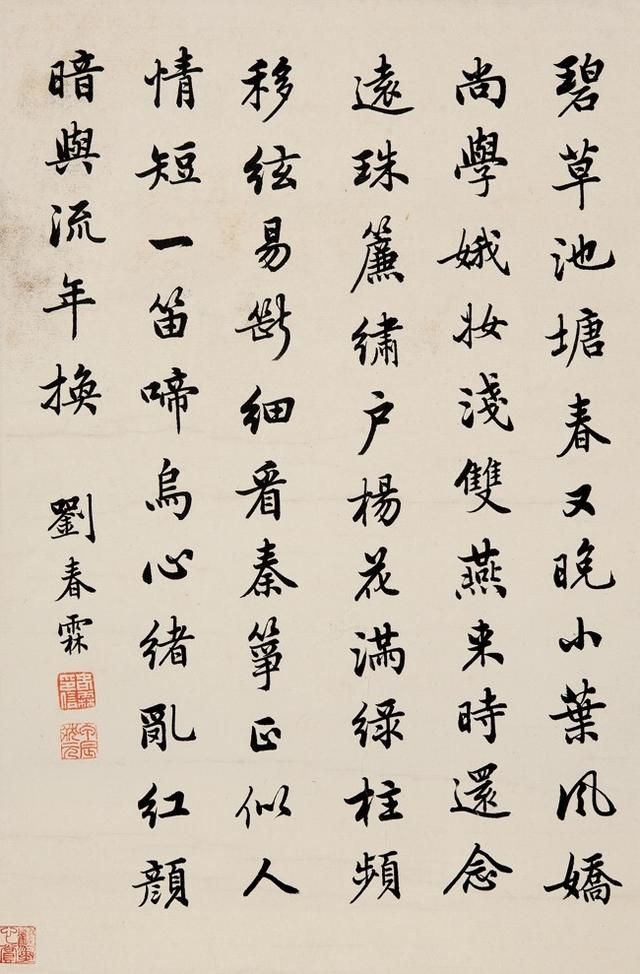 碧草池塘春又晚小葉風嬌
尚學娥妝淺雙燕来時還念
遠珠簾繡户楊花滿緑柱頻
移絃易斷細看秦箏正似人
情短一笛啼烏心緒亂紅顔
暗與流年换
劉春霖